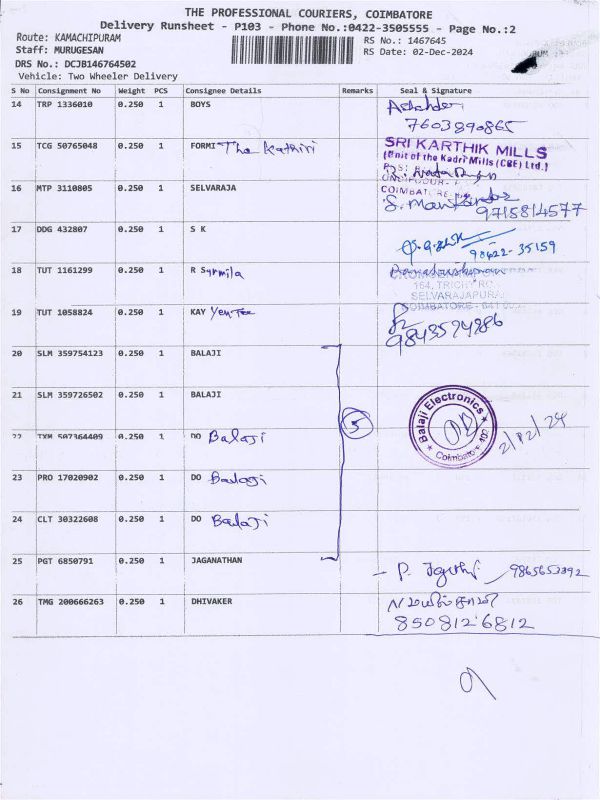 THE PROFESSIONAL COURIERS, COIMBATORE
Delivery Runsheet - P103 - Phone No.:0422-3505555 - Page No.:2
Route: KAMACHIPURAM
RS No.: 1467645
Staff: MURUGESAN
RS Date: 02-Dec-2024
DRS No.: DCJB146764502
Vehicle: Two Wheeler Delivery
S No Consignment No Weight PCS Consignee Details Remarks Seal & Signature
14 TRP 1336010 0.250 1 BOYS
7603890865
15 TCG 50765048 0.250 1 FORMI The Kathiri
SRI KARTHIK MILLS
(Unit of the Kadri Mills (CBE) Ltd.)
COIMBATORE
16 MTP 3110805 0.250 1 SELVARAJA
9715814577
17 DDG 432807 0.250 1 S K
98422-35159
18 TUT 1161299 0.250 1 R Syrmila
164, TRICHY RO
SELVARAJAPURA
COIMBATORE - 641 00
19 TUT 1058824 0.250 1 KAY YenTee
9843524286
20 SLM 359754123 0.250 1 BALAJI
21 SLM 359726502 0.250 1 BALAJI
5
Balaji Electronics
Coimbatore
2/12/24
22 TXM 507364409 0.250 1 DO Balaji
23 PRO 17020902 0.250 1 DO Balaji
24 CLT 30322608 0.250 1 DO Balaji
25 PGT 6850791 0.250 1 JAGANATHAN
9865653392
26 TMG 200666263 0.250 1 DHIVAKER
850812 6812